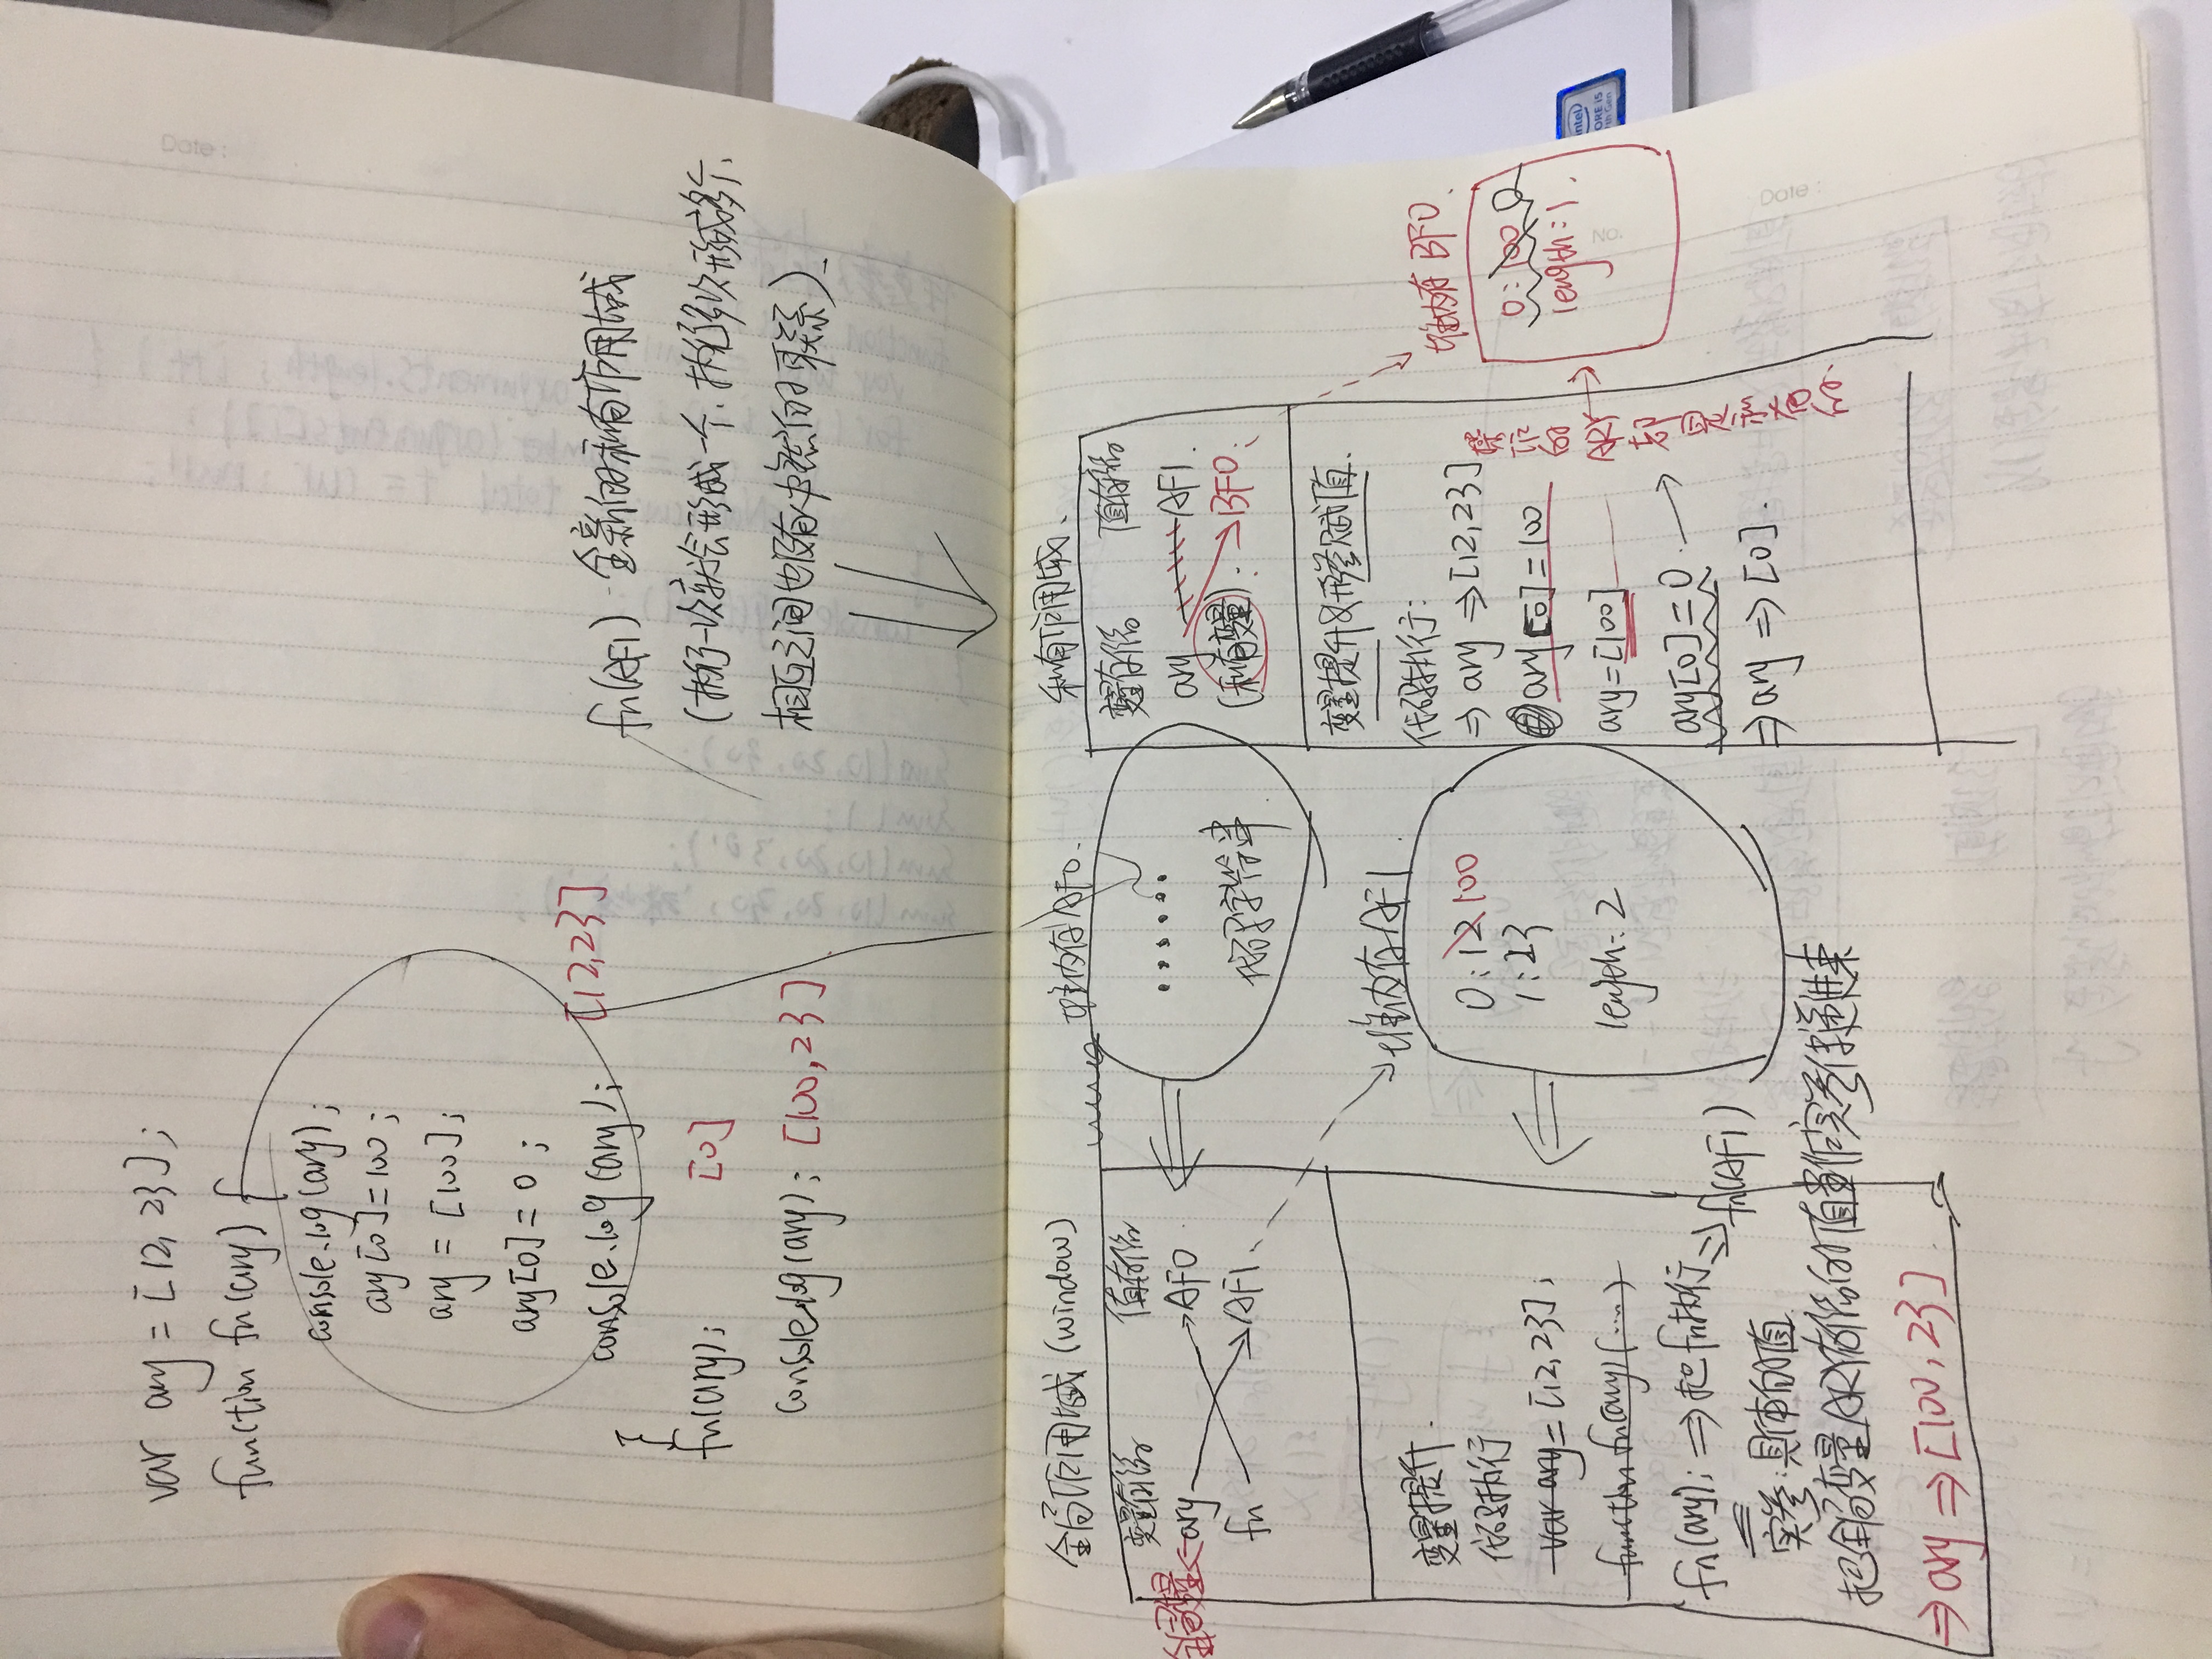 var ary = [12, 23];
function fn(ary) {
console.log(ary);
ary[0]=100;
ary = [100];
ary[0] = 0;
console.log(ary); [12,23]
}
fn(ary); [0]
console.log(ary); [100,23]
fn(AF1) 全新的私有作用域
(执行一次就会形成一个,执行多次形成多个,
相互之间也没有必然的联系)
全局作用域(window)
变量存储 值存储
全局变量 ary AF0
fn AF1
变量提升
代码执行
var ary = [12,23];
function fn(ary){...}
fn(ary); ⇒ 把fn执行 ⇒ fn(AF1)
实参:具体的值
把全局变量ARY存储的值当作实参传递进来
⇒ ary ⇒ [100,23]
堆内存AF0
......
代码字符串
堆内存AF1
0:12 100
1:23
length:2
私有作用域
变量存储 值存储
ary AF1
(私有变量) BF0
变量提升&形参赋值
代码执行:
⇒ ary ⇒ [12,23]
ary[0]=100
ary=[100]
ary[0]=0
⇒ ary ⇒ [0]
的ARY都是私有的
堆内存BF0
0:100 0
length:1
intel
CORE i5
Date:
NO.
Date: